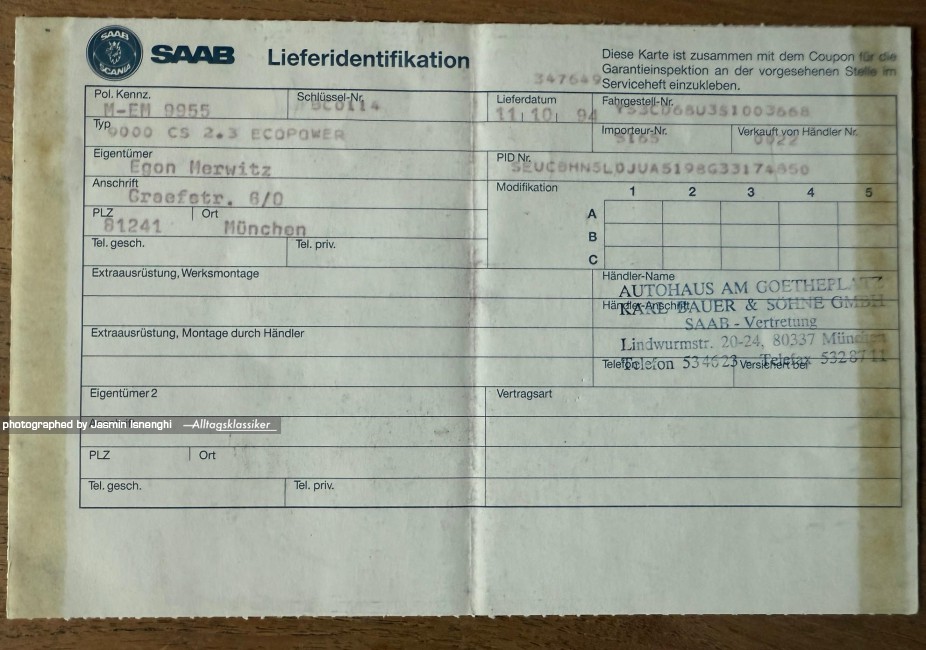 SAAB
SCANIA
SAAB Lieferidentifikation
Diese Karte ist zusammen mit dem Coupon für die
Garantieinspektion an der vorgesehenen Stelle im
Serviceheft einzukleben.
347649
Pol. Kennz. M-EM 9955
Schlüssel-Nr.
Lieferdatum 11 10 94
Fahrgestell-Nr.
Typ 9000 CS 2.3 ECOPOWER
Importeur-Nr.
Verkauft von Händler Nr.
Eigentümer Egon Merwitz
PID Nr.
Anschrift Graefstr. 8/0
Modifikation 1 2 3 4 5
A
B
C
PLZ 81241 Ort München
Tel. gesch. Tel. priv.
Extraausrüstung, Werksmontage
Händler-Name
AUTOHAUS AM GOETHEPLATZ
Händler-Anschrift
KARL BAUER & SÖHNE GMBH
SAAB - Vertretung
Extraausrüstung, Montage durch Händler
Lindwurmstr. 20-24, 80337 München
Telefon Versichert bei
Telefon 534623 Telefax 5328711
Eigentümer 2
Vertragsart
photographed by Jasmin Isnenghi —Alltagsklassiker
PLZ Ort
Tel. gesch. Tel. priv.